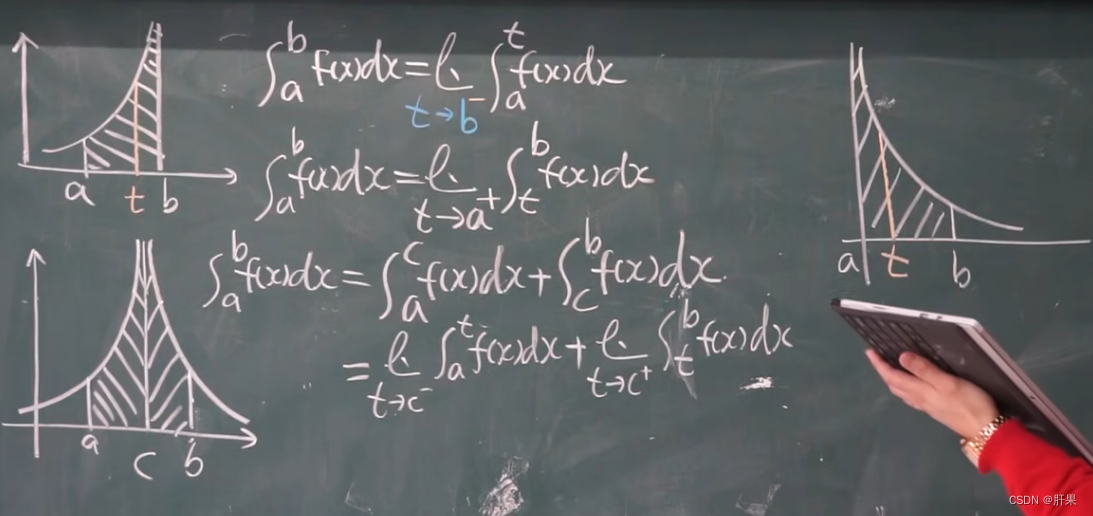 ∫_a^b f(x)dx = l.. _{t→b⁻} ∫_a^t f(x)dx
a t b
∫_a^b f(x)dx = l.. _{t→a⁺} ∫_t^b f(x)dx
a t b
∫_a^b f(x)dx = ∫_a^c f(x)dx + ∫_c^b f(x)dx.
= l.. _{t→c⁻} ∫_a^t f(x)dx + l.. _{t→c⁺} ∫_t^b f(x)dx
a c b
CSDN @肝果